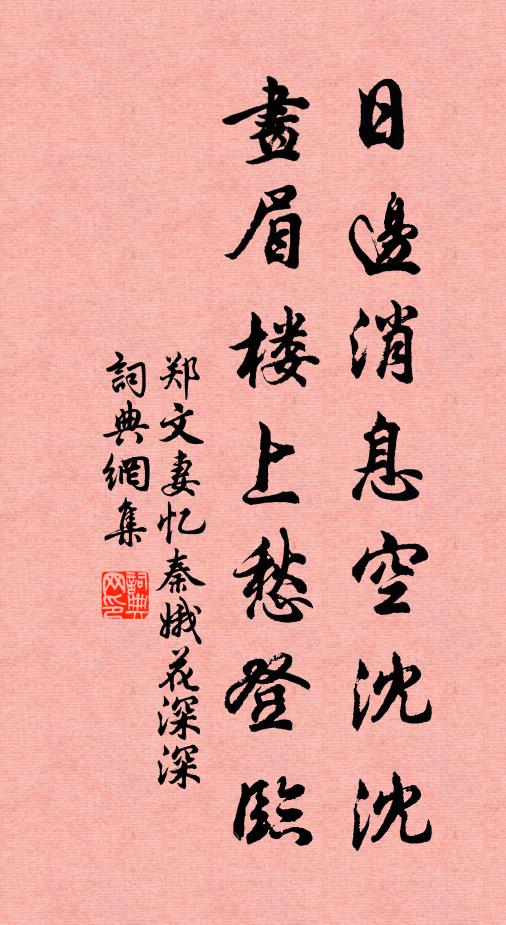 日邊消息空沈沈
畫眉楼上愁登臨
郑文妻忆秦娥花深深
詞典網集
詞典网印